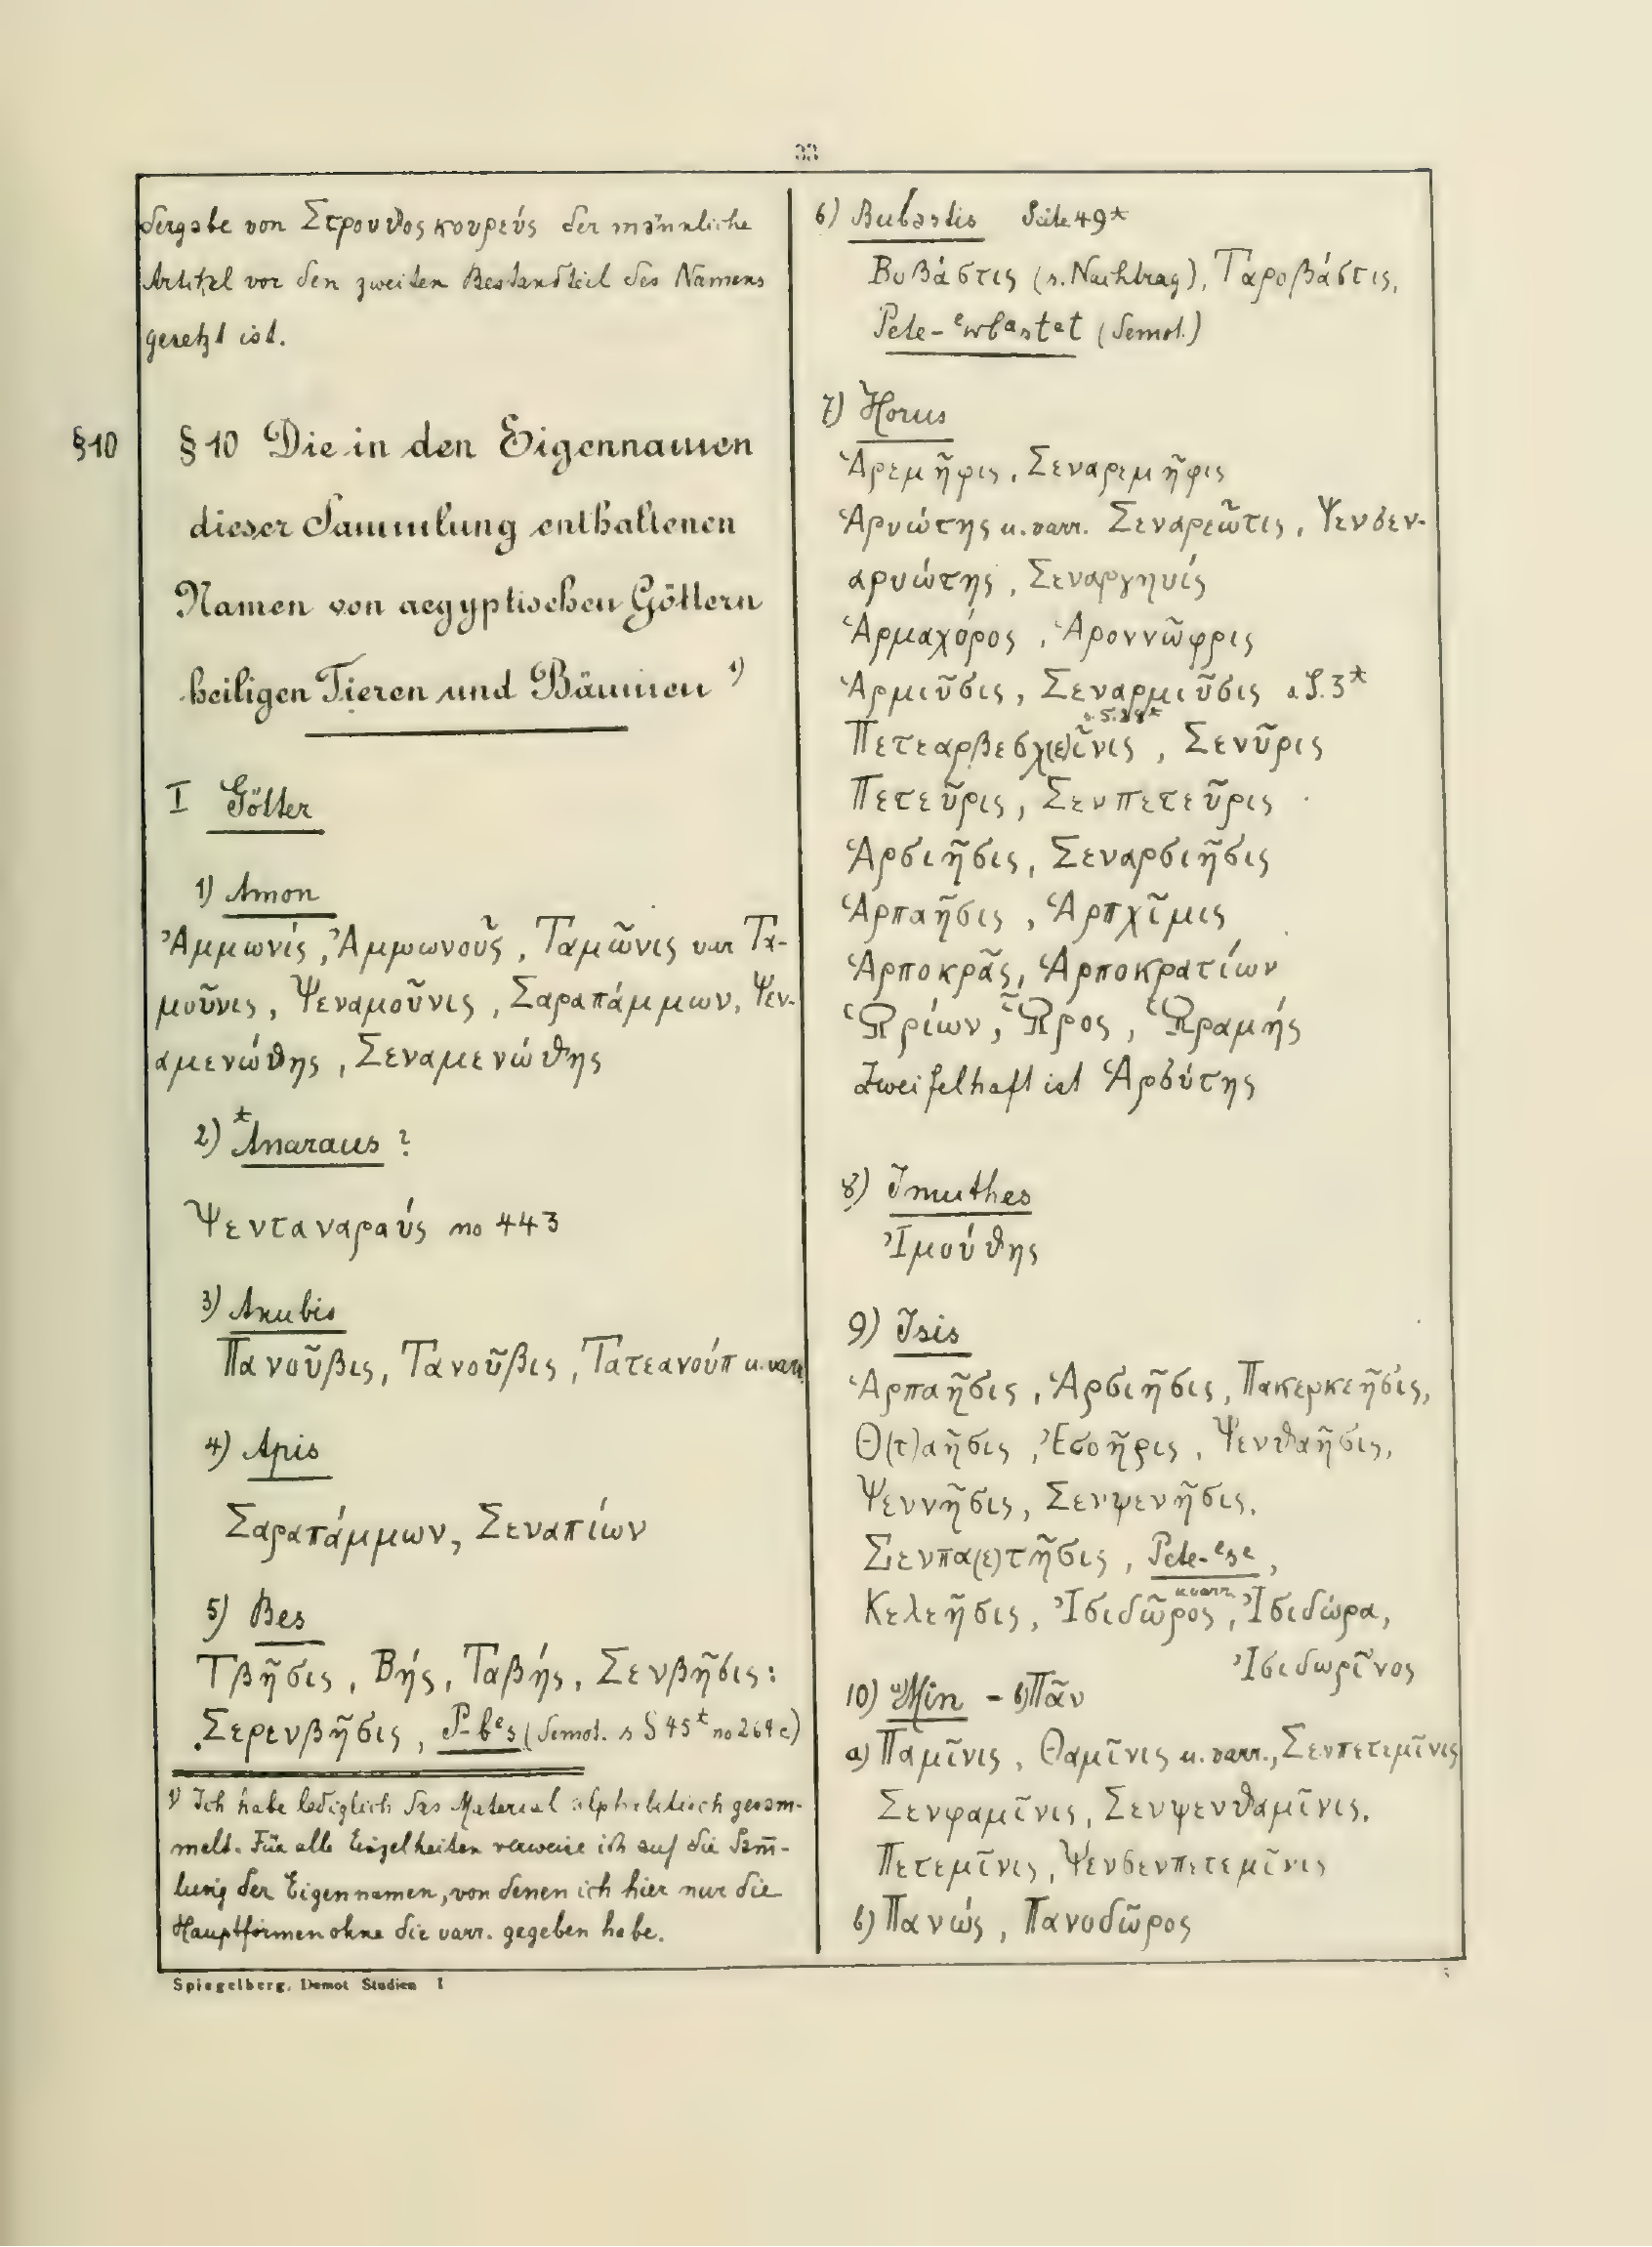 33
dergabe von Στρουθος κουρεύς der männliche
Artikel vor den zweiten Bestandteil des Namens
gesetzt ist.
§10
§10 Die in den Eigennamen
dieser Sammlung enthaltenen
Namen von aegyptischen Göttern
heiligen Tieren und Bäumen 1)
I Götter
1) Amon
Ἀμμωνίς, Ἀμμωνοῦς, Ταμῶνις var Τα-
μοῦνις, Ψεναμοῦνις, Σαραπάμμων, Ψεν-
αμενώθης, Σεναμενώθης
2) *Anaraus?
Ψενταναραύς no 443
3) Anubis
Πανοῦβις, Τανοῦβις, Τατεανούπ u. varr.
4) Apis
Σαραπάμμων, Σεναπίων
5) Bes
Τβῆσις, Βής, Ταβής, Σενβῆσις:
Σερενβῆσις, P-bes (demot. s S 45* no 269c)
1) Ich habe lediglich das Material alphabetisch gesam-
melt. Für alle Einzelheiten verweise ich auf die Sam̄-
lung der Eigennamen, von denen ich hier nur die
Hauptformen ohne die varr. gegeben habe.
Spiegelberg, Demot Studien I
6) Bubastis Seite 49*
Βυβάστις (s. Nachtrag), Ταροβάστις,
Pete-ᵉwbᵃstet (demot.)
7) Horus
Ἁρεμῆφις, Σεναρεμῆφις
Ἁρυώτης u. varr. Σεναρεῶτις, Ψενσεν-
αρυώτης, Σεναργηυίς
Ἁρμαχόρος, Ἁροννῶφρις
Ἁρμιῦσις, Σεναρμιῦσις s. S. 3*
s. S. 28*
Πετεαρβεσχ(ε)ῖνις, Σενῦρις
Πετεῦρις, Σενπετεῦρις
Ἁρσιῆσις, Σεναρσιῆσις
Ἁρπαῆσις, Ἁρπχῖμις
Ἁρποκρᾶς, Ἁρποκρατίων
Ὡρίων, Ὧρος, Ὡραμής
Zweifelhaft ist Ἁρβύτης
8) Imuthes
Ἰμούθης
9) Isis
Ἁρπαῆσις, Ἁρσιῆσις, Πακερκεῆσις,
Θ(τ)αῆσις, Ἐσοῆρις, Ψενθαῆσις,
Ψεννῆσις, Σενψενῆσις.
Σενπα(ε)τῆσις, Pete-ᵉse,
Κελεῆσις, Ἰσιδῶρος u varr, Ἰσιδώρα,
Ἰσιδωρῖνος
10) a) Min - b) Πᾶν
a) Παμῖνις, Θαμῖνις u. varr., Σενπετεμῖνις
Σενφαμῖνις, Σενψενθαμῖνις.
Πετεμῖνις, Ψενσενπετεμῖνις
b) Πανώς, Πανοδῶρος